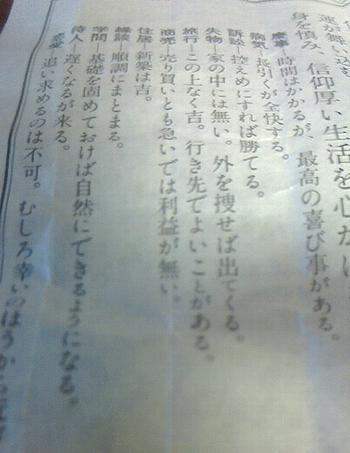 運が舞い込む
身を慎み、信仰厚い生活を心が
慶事─時間はかかるが、最高の喜び事がある。
病気─長引くが全快する。
訴訟─控えめにすれば勝てる。
失物─家の中には無い。外を捜せば出てくる。
旅行─この上なく吉。行き先でよいことがある。
商売─売り買いとも急いでは利益が無い。
住居─新築は吉。
縁談─順調にまとまる。
学問─基礎を固めておけば自然にできるようになる。
待人─遅くなるが来る。
恋愛─追い求めるのは不可。むしろ幸いのほうから